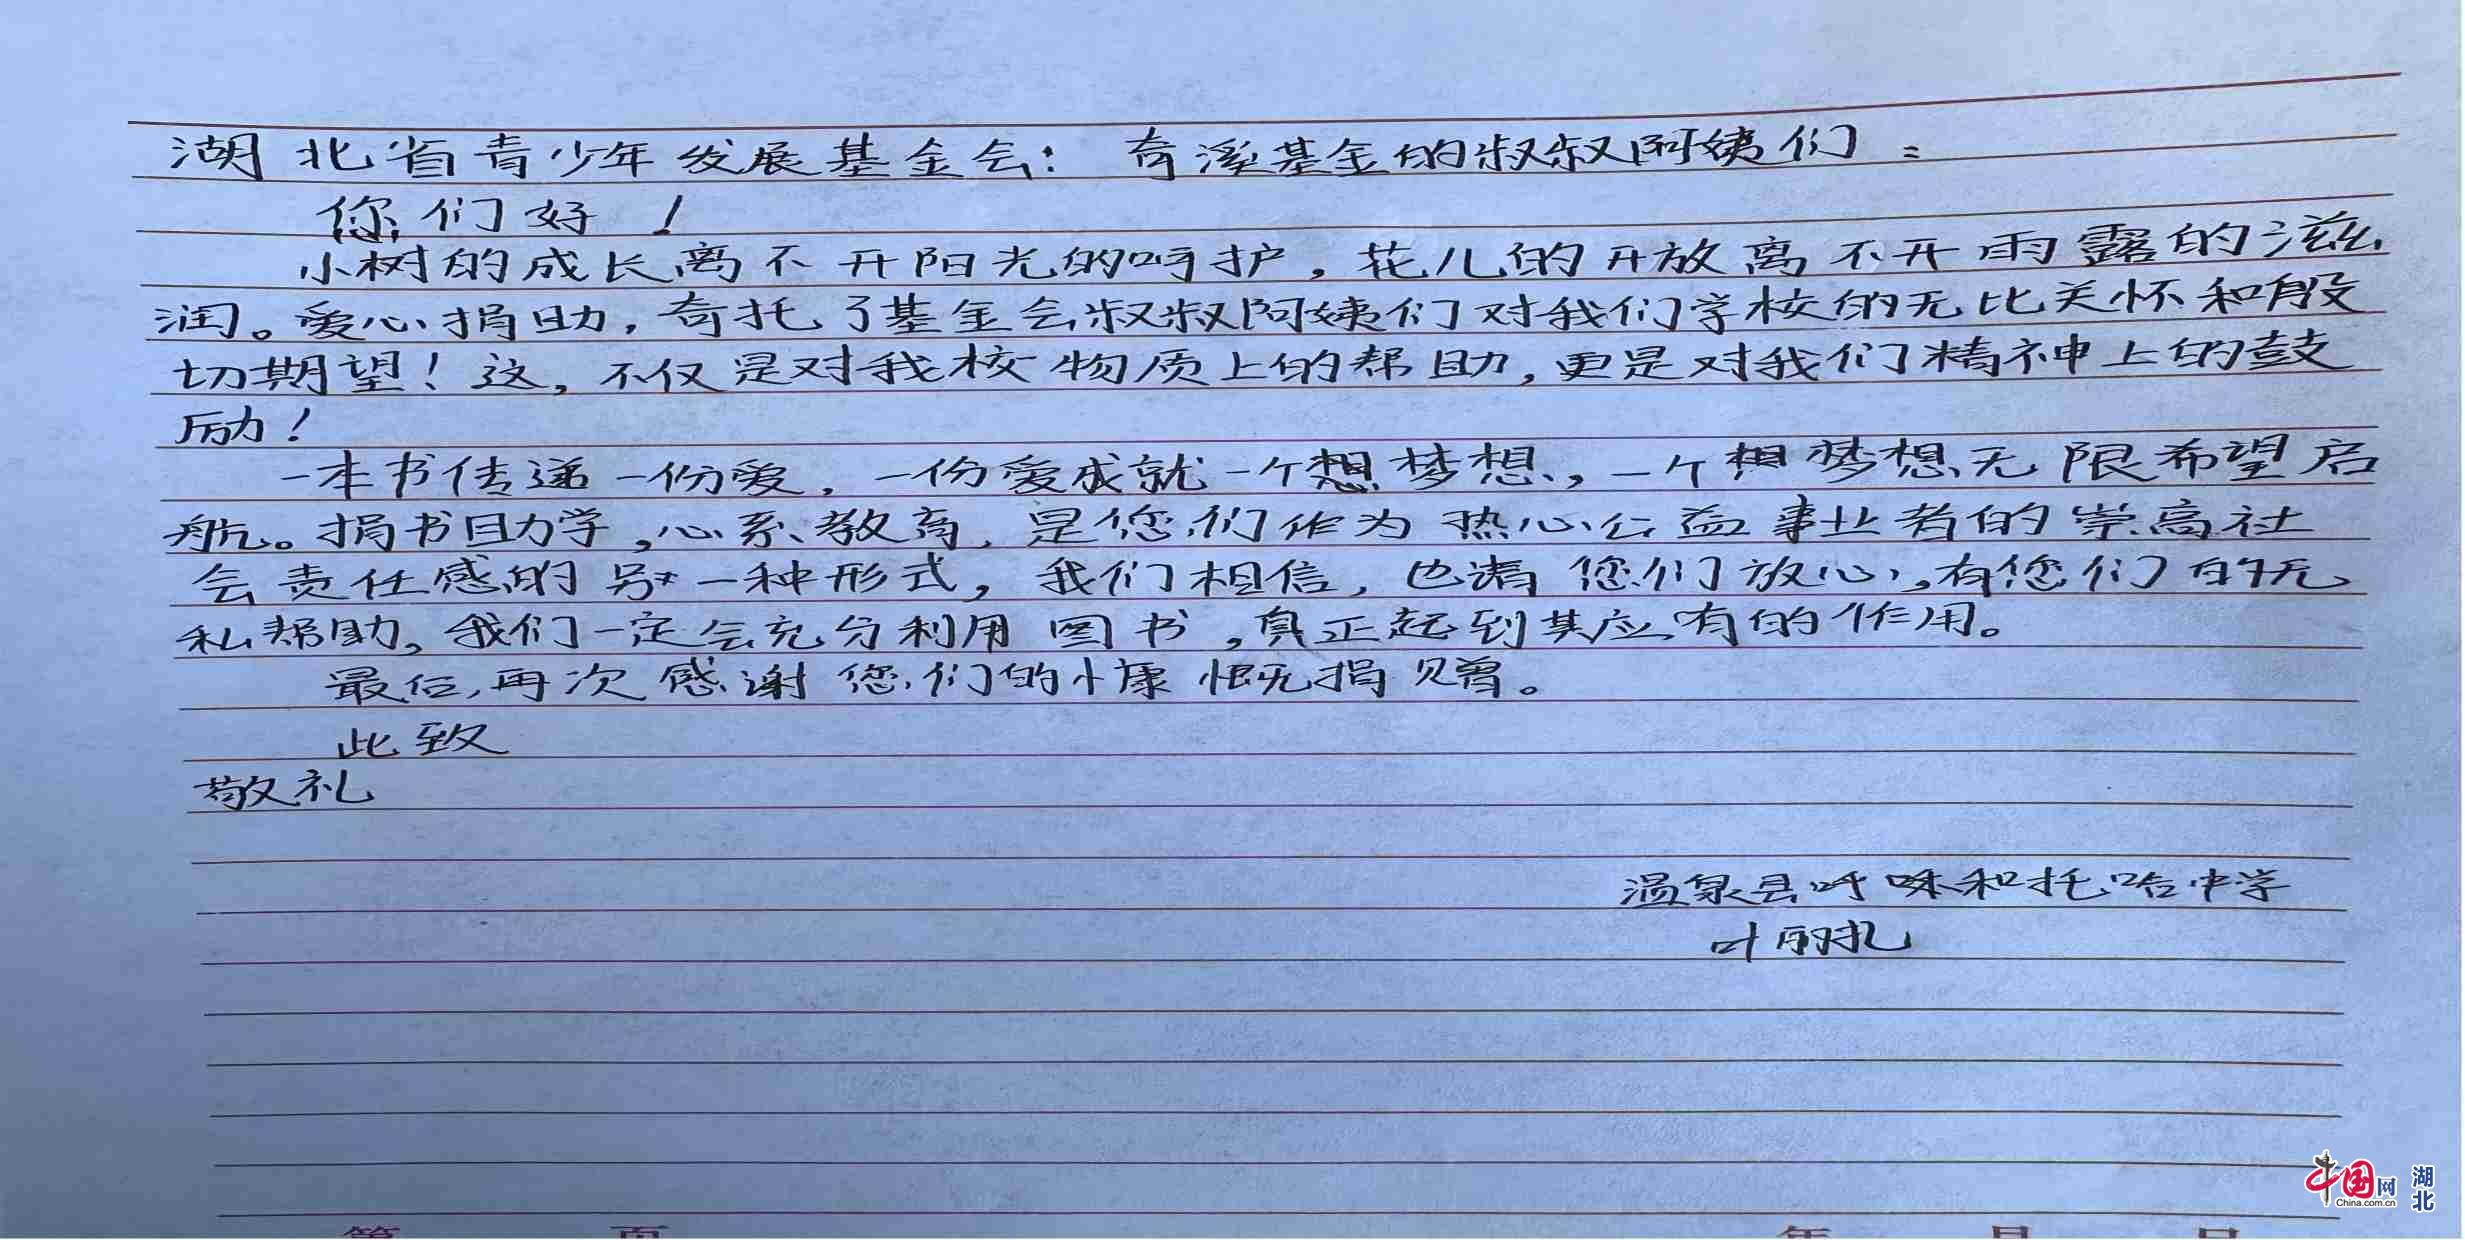 湖北省青少年发展基金会：奇溪基金的叔叔阿姨们：
你们好！
小树的成长离不开阳光的呵护，花儿的开放离不开雨露的滋
润。爱心捐助，寄托了基金会叔叔阿姨们对我们学校的无比关怀和殷
切期望！这，不仅是对我校物质上的帮助，更是对我们精神上的鼓
励！
一本书传递一份爱，一份爱成就一个想梦想，一个想梦想无限希望启
航。捐书助学，心系教育，是您们作为热心公益事业者的崇高社
会责任感的另一种形式，我们相信，也请您们放心，有您们的无
私帮助。我们一定会充分利用图书，真正起到其应有的作用。
最后，再次感谢您们的慷慨捐赠。
此致
敬礼
温泉县呼和托哈中学
叶丽扎
第 页 年 月 日
中国网 湖北
China.com.cn